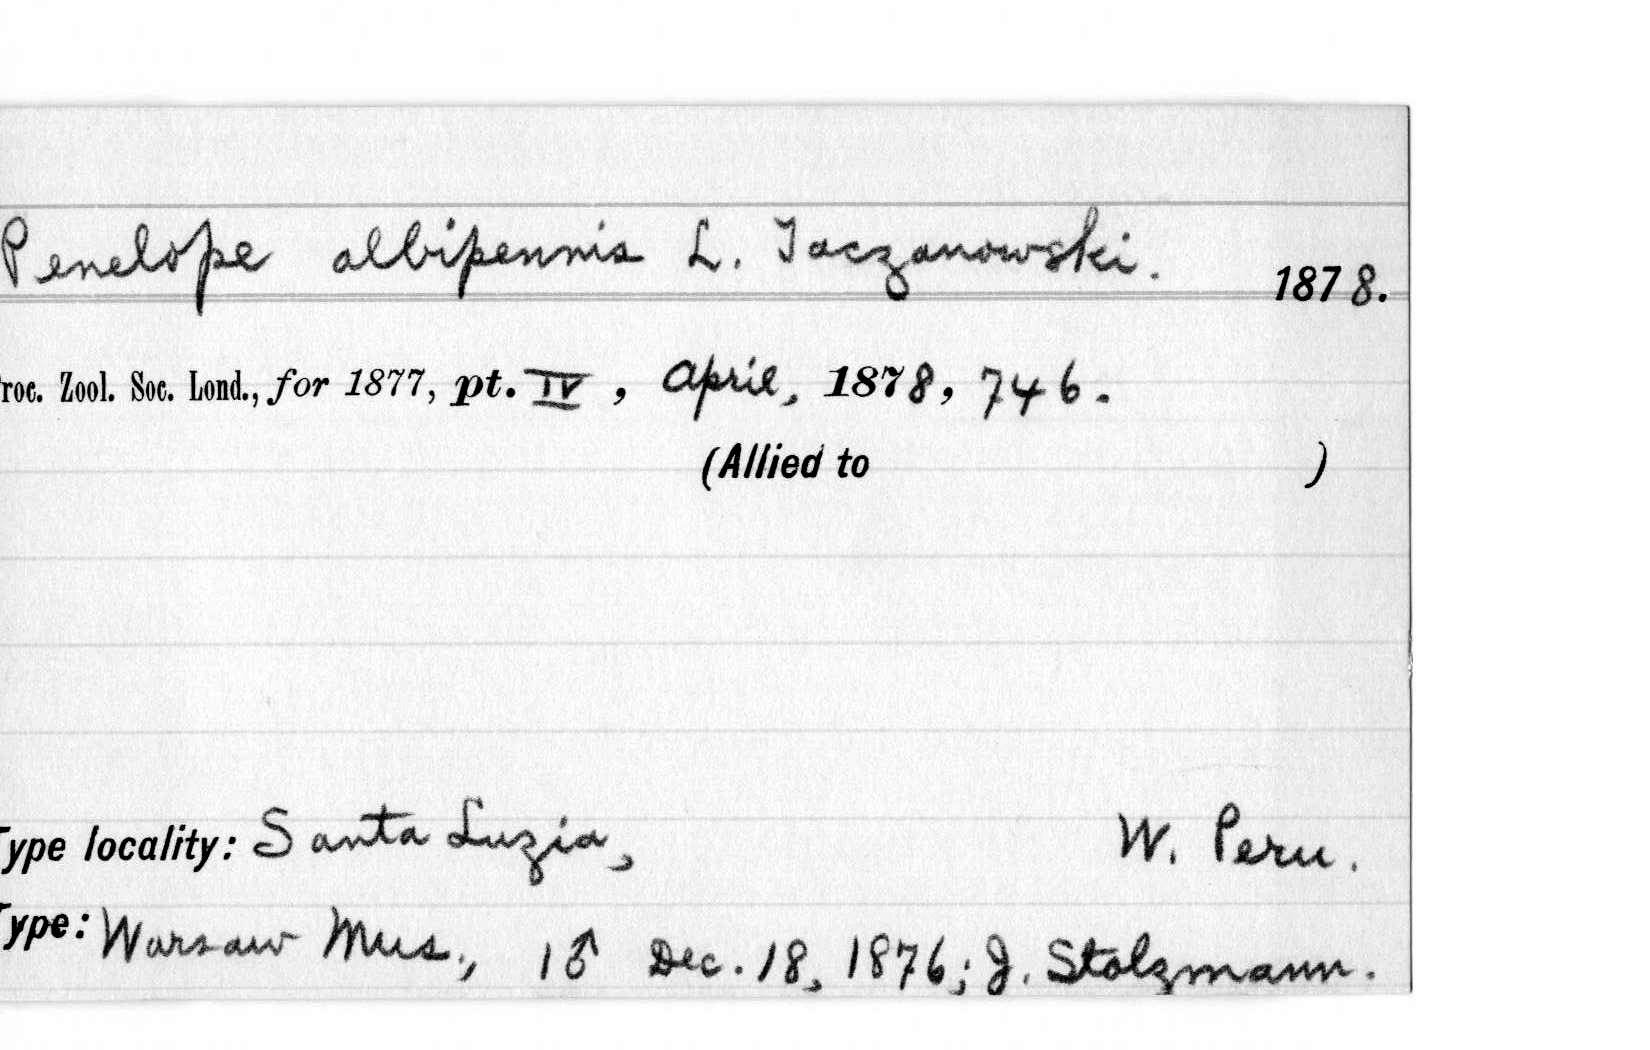 Penelope albipennis L. Taczanowski. 1878.
roc. Zool. Soc. Lond., for 1877, pt. IV, April, 1878, 746.
(Allied to )
Type locality: Santa Luzia, W. Peru.
Type: Warsaw Mus., 1♂ Dec. 18, 1876; J. Stolzmann.